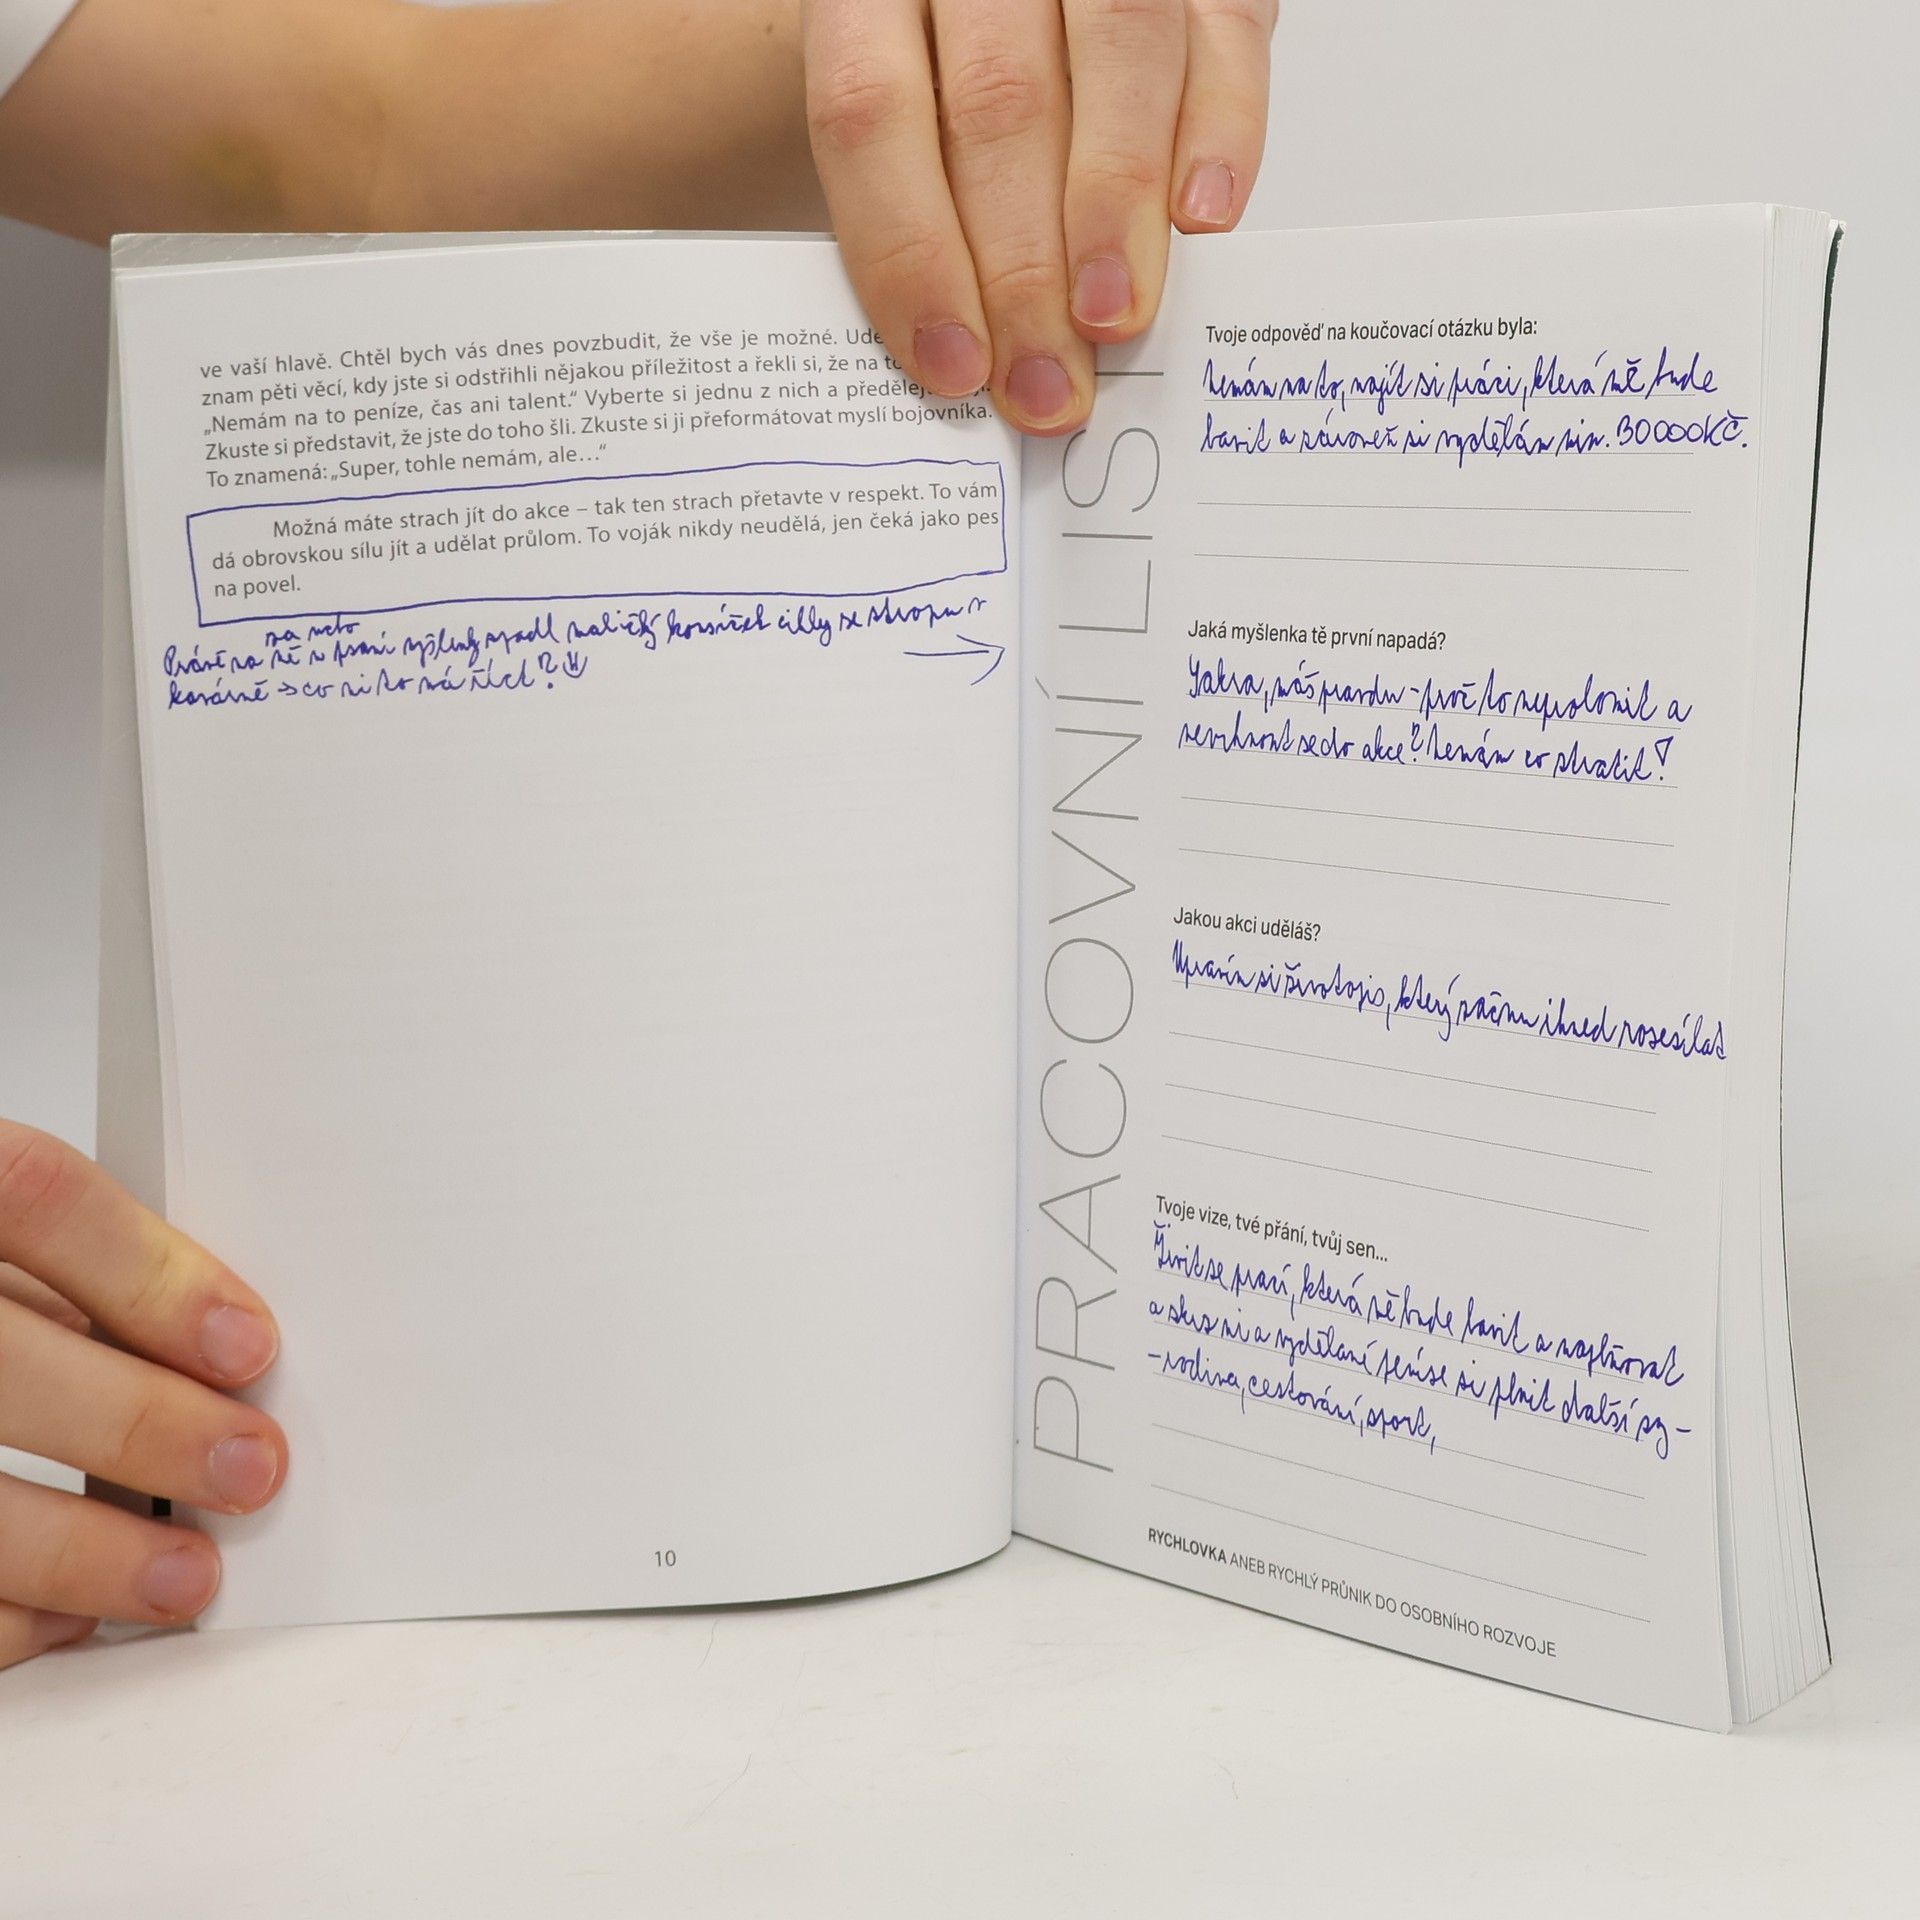 ve vaší hlavě. Chtěl bych vás dnes povzbudit, že vše je možné.
znam pěti věcí, kdy jste si odstřihli nějakou příležitost a řekli si, že na
„Nemám na to peníze, čas ani talent.“ Vyberte si jednu z nich a
Zkuste si představit, že jste do toho šli. Zkuste si ji přeformátovat myslí bojovníka.
To znamená: „Super, tohle nemám, ale…“
Možná máte strach jít do akce – tak ten strach přetavte v respekt. To vám
dá obrovskou sílu jít a udělat průlom. To voják nikdy neudělá, jen čeká jako pes
na povel.
Právě na mě v psaní spadl maličký kousíček cihly ze stropu v
kavárně → co mi to má říct?
10
PRACOVNÍ LIST
Tvoje odpověď na koučovací otázku byla:
Nemám na to, najít si práci, která mě bude
bavit a zároveň si vydělám min. 30 000 Kč.
Jaká myšlenka tě první napadá?
Sakra, máš pravdu - proč to neprolomit a
nevrhnout se do akce? Nemám co ztratit!
Jakou akci uděláš?
Upravím si životopis, který začnu ihned rozesílat
Tvoje vize, tvé přání, tvůj sen...
Živit se prací, která mě bude bavit a naplňovat
a skrz ni a vydělané peníze si plnit další sny -
- rodina, cestování, sport,
RYCHLOVKA ANEB RYCHLÝ PRŮNIK DO OSOBNÍHO ROZVOJE